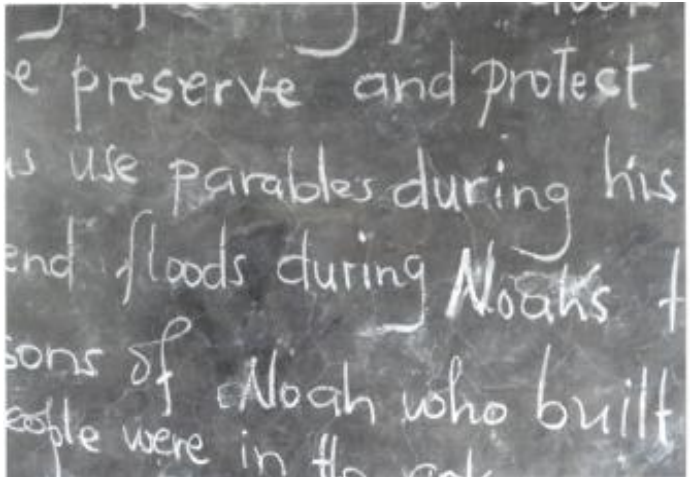 e preserve and protect
us use parables during his
end floods during Noah's t
sons of Noah who built
eople were in the ark